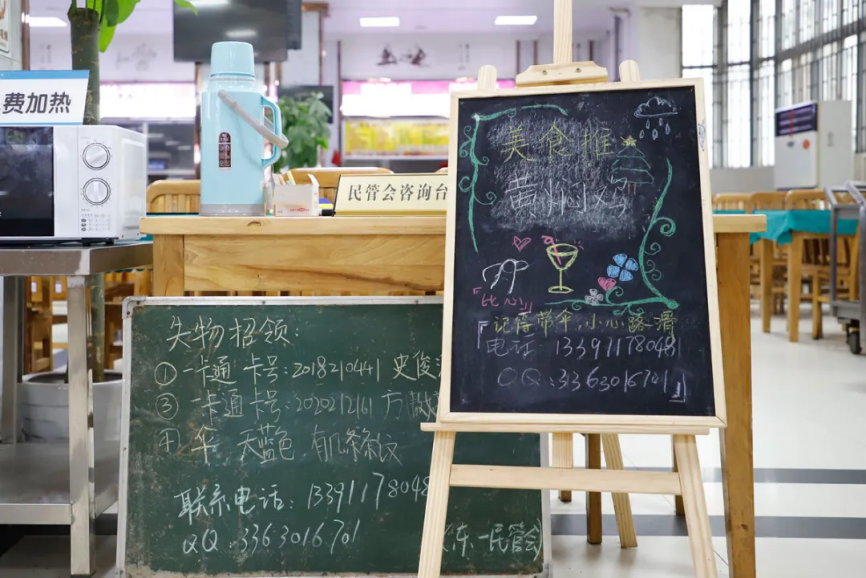 费加热
民管会咨询台
美食推
黄州小鸡
"比心"
「记得带伞,小心路滑
电话:13391178048
QQ:3363016701」
失物招领:
① 一卡通 卡号:2018210441 史俊
③ 一卡通卡号:2020212161 方
④ 伞 天蓝色 有几条条纹
联系电话:13391178048
QQ:3363016701
东一民管会